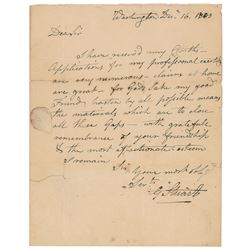 Washington Decr. 16. 1803
Dear Sir
I have recievd my
Applications for my professional
are very numerous claims at home
are great - for Gods sake my good
Friend, hasten by all possible means
the materials which are to close
all these Gaps - with grateful
remembrance of your friendship
& the most affectionate esteem
I remain
Sir your most
G. Stuart